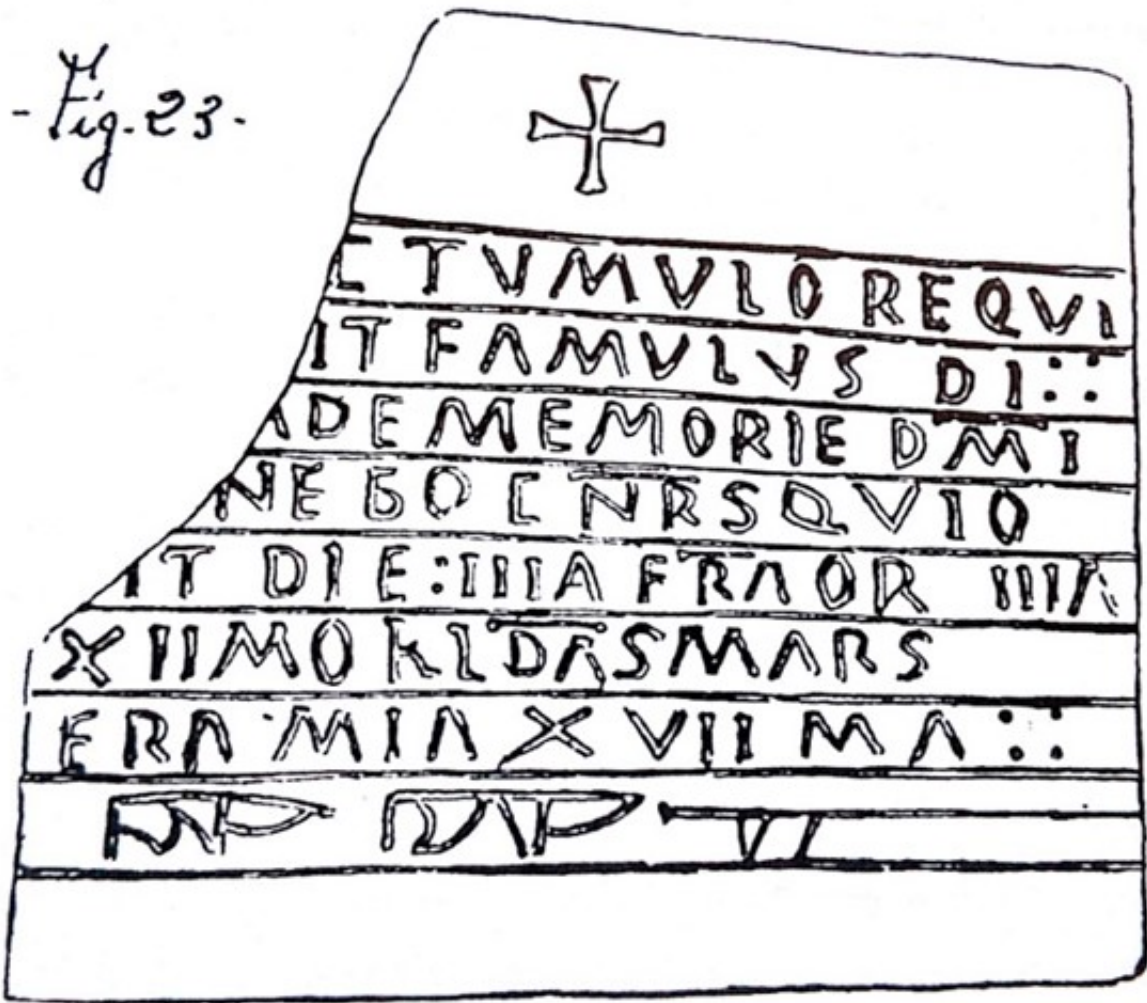 - Fig. 23 -
C TVMVLO REQVI
IT FAMVLVS DI ::
ADE MEMORIE DMI
NE BO C NRS QVI O
IT DIE : IIIIA FRA OR IIIIA
XIIMO KLDAS MARS
ERA MIA XVIIMA ::